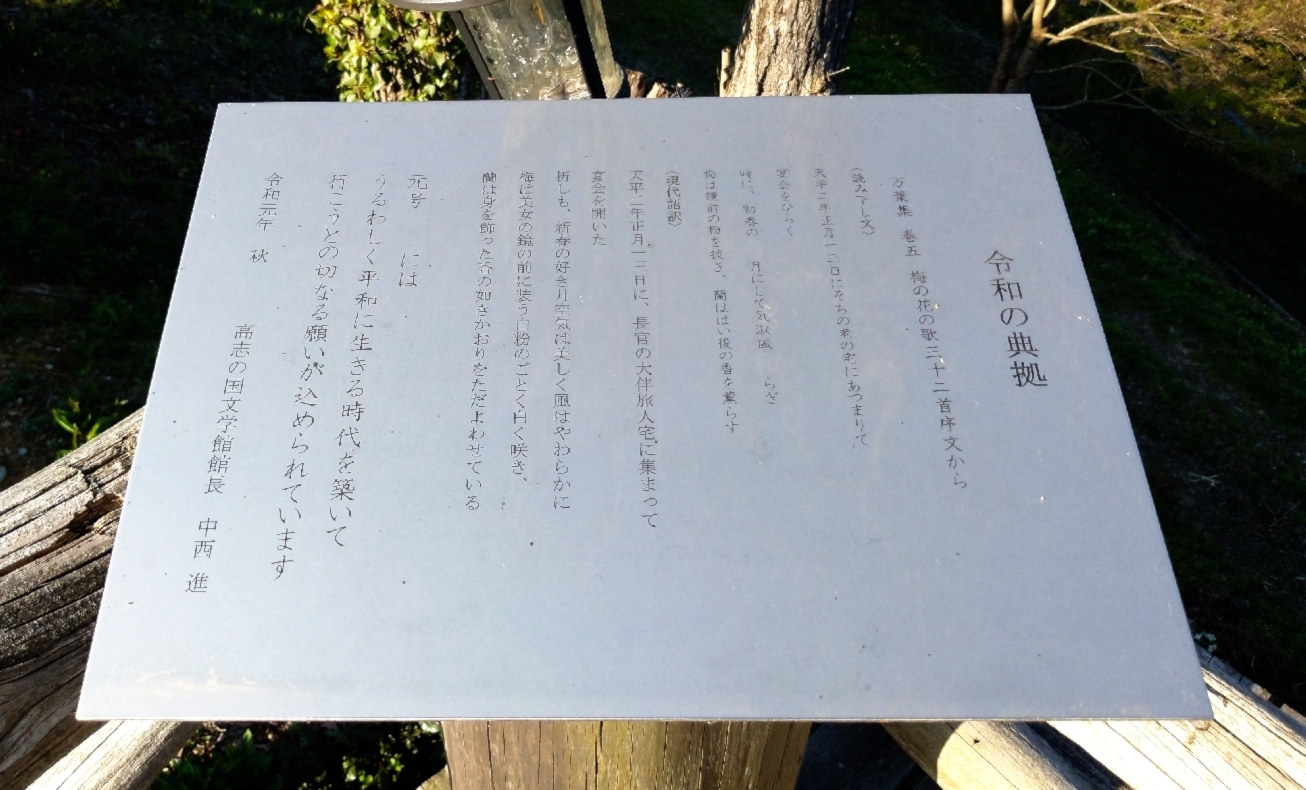 令和の典拠
万葉集 巻五 梅の花の歌三十二首序文から
〈読み下し文〉
天平二年正月一三日にそちの老の宅にあつまりて
宴会をひらく
時に、初春の 月にして気淑風 らぎ
梅は鏡前の粉を披き、蘭ははい後の香を薫らす
〈現代語訳〉
天平二年正月一三日に、長官の大伴旅人宅に集まって
宴会を開いた
折しも、新春の好き月空気は美しく風はやわらかに
梅は美女の鏡の前に装う白粉のごとく白く咲き、
蘭は身を飾った香の如きかおりをただよわせている
元号 には
うるわしく平和に生きる時代を築いて
行こうとの切なる願いが込められています
令和元年 秋
高志の国文学館館長 中西 進